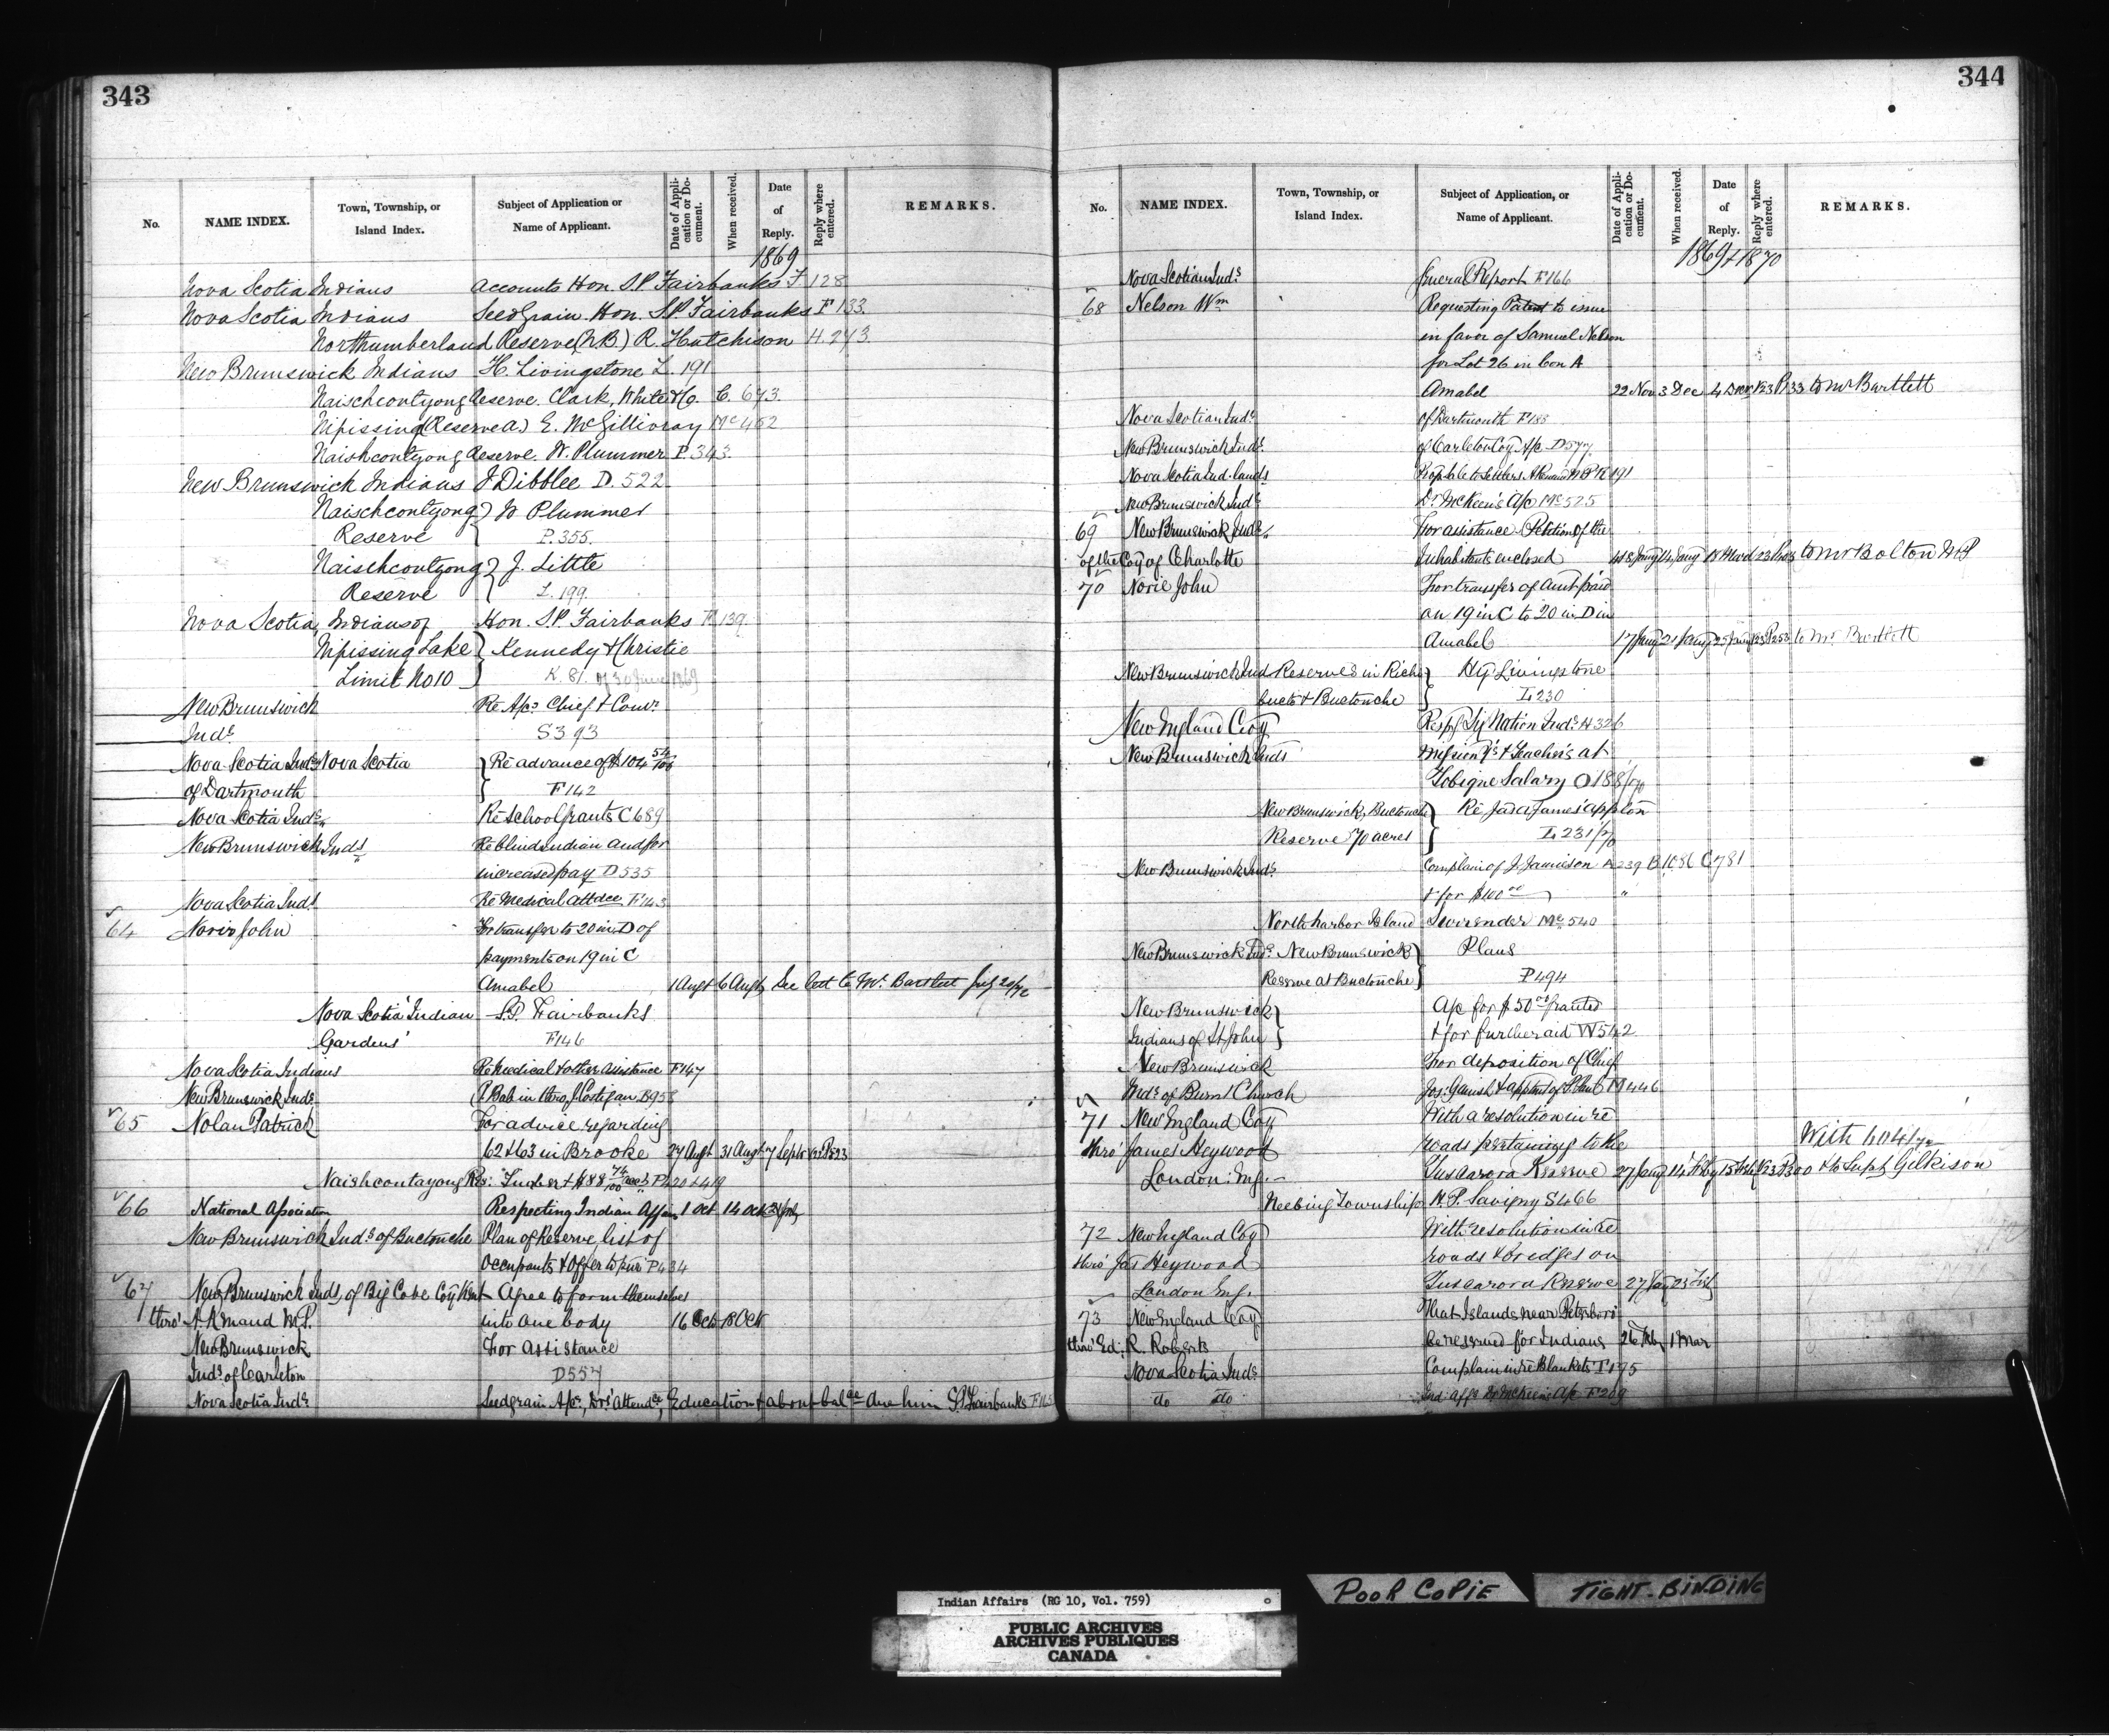 343
No.
NAME INDEX.
Town, Township, or Island Index.
Subject of Application or Name of Applicant.
Date of Application or Document.
When received.
Date of Reply.
Reply where entered.
REMARKS.
1869
Nova Scotia Indians accounts Hon. S.P. Fairbanks F 128
Nova Scotia Indians Seed Grain Hon. S.P. Fairbanks F 133.
Northumberland Reserve (N.B) R. Hutchison H. 243.
New Brunswick Indians H. Livingstone L. 191
Naischcoutyong Reserve. Clark, White & Co. C. 673.
Nipissing (Reserve A.) E. McGillivray Mc 462
Naishcoutyong Reserve. W. Plummer P. 343.
New Brunswick Indians J Dibblee D. 522
Naischcoutyong } W Plummer
Reserve P. 355.
Naischcoutyong } J. Little
Reserve L. 199.
Nova Scotia, Indians of Hon. S.P. Fairbanks F. 139.
Nipissing Lake } Kennedy & Christie
Limit No 10 K. 81. of 30 June 1869
New Brunswick Re A/cs Chief &
Inds S 393
Nova Scotia Inds Nova Scotia } Re advance of $104 54/100
of Dartmouth F 142
Nova Scotia Inds Re School Grants C 689
New Brunswick Inds Re blind Indian and for
increased pay D 535
Nova Scotia Inds Re Medical attdce F 143
64 Norie John For transfer to 20 in D of
payments on 19 in C
Amabel 1 Augt 6 Augt See let to Mr. Bartlett July 20/72
Nova Scotia Indian S.P. Fairbanks
Gardens F 146
Nova Scotia Indians Re Medical & other assistance F 147
New Brunswick Inds
65 Nolan Patrick For advice regarding
62 & 63 in Brooke 27 Augt 31 Augt 7 Septr
Naishcoutayong Res:
66 National Association Respecting Indian Affairs 1 Oct 14 Oct
New Brunswick Inds of Buctouche Plan of Reserve list of
occupants & Offer to P 434
67 New Brunswick Inds, of Big Cove Coy Kent Agree to form themselves
thro' A. Renaud M.P. into one body 16 Oct 18 Oct
New Brunswick For assistance
Inds of Carleton D 557
Nova Scotia Inds Seedgrain A/c, Drs' attendce, Education & about balce due him S.P. Fairbanks
344
No.
NAME INDEX.
Town, Township, or Island Index.
Subject of Application, or Name of Applicant.
Date of Application or Document.
When received.
Date of Reply.
Reply where entered.
REMARKS.
1869 & 1870
Nova Scotian Inds General Report F 166
68 Nelson Wm Requesting Patent to issue
in favor of Samuel Nelson
for Lot 26 in Con A
Amabel 22 Nov 3 Dec 4 Decr 123 P 33 to Mr Bartlett
Nova Scotian Inds of Dartmouth F 185
New Brunswick Inds of Carleton Coy A/c D 577
Nova Scotia Ind. lands
New Brunswick Inds Dr McKeen's A/c Mc 525
69 New Brunswick Inds For assistance Petition of the
of the Coy of Charlotte Inhabitants enclosed to Mr Bolton M P
70 Norie John For transfer of amt paid
on 19 in C to 20 in D in
Amabel 17 Jany 21 Jany 25 Jany 123 P 253 to Mr. Bartlett
New Brunswick Ind Reserves in Richi } H G Livingstone
bucto & Buctouche L 230
New England Coy Respg Six Nation Inds H 326
New Brunswick Inds & Teachers at
Tobique Salary O 188/70
New Brunswick, Buctouche } Re Jas. a James' applon
Reserve 70 acres L 231/70
New Brunswick Inds Complain of J. Jamieson A 239 B 1086 C 781
& for $100 00 "
North harbor Island Surrender Mc 540
New Brunswick Inds New Brunswick } Plans
Reserve at Buctouche P 494
New Brunswick } A/c for $50 00 granted
Indians of St John & for further aid W 542
New Brunswick For deposition of Chief
Inds of Burnt Church M 446
71 New England Coy With a resolution in re
thro' James Heywood roads pertaining to the With 604/70
London: Eng. Tuscarora Reserve 27 Jany 14 Feby 15 Feb 123 P 300 & to Supt Gilkison
Neebing Township H. P. Savigny S 466
72 New England Coy With resolution in re
thro' Jas Heywood roads & bridges on
London Eng. Tuscarora Reserve 27 Jay 23 Feb
73 New England Coy That Islands near Peterboro'
thro' Ed: R. Roberts be reserved for Indians 26 Feb 1 Mar
Nova Scotia Inds Complain in re Blankets F 195
do do Ind: Affs Dr McKeens A/c F 209
Indian Affairs (RG 10, Vol. 759)
PUBLIC ARCHIVES
ARCHIVES PUBLIQUES
CANADA
POOR COPIE
TIGHT-BINDING